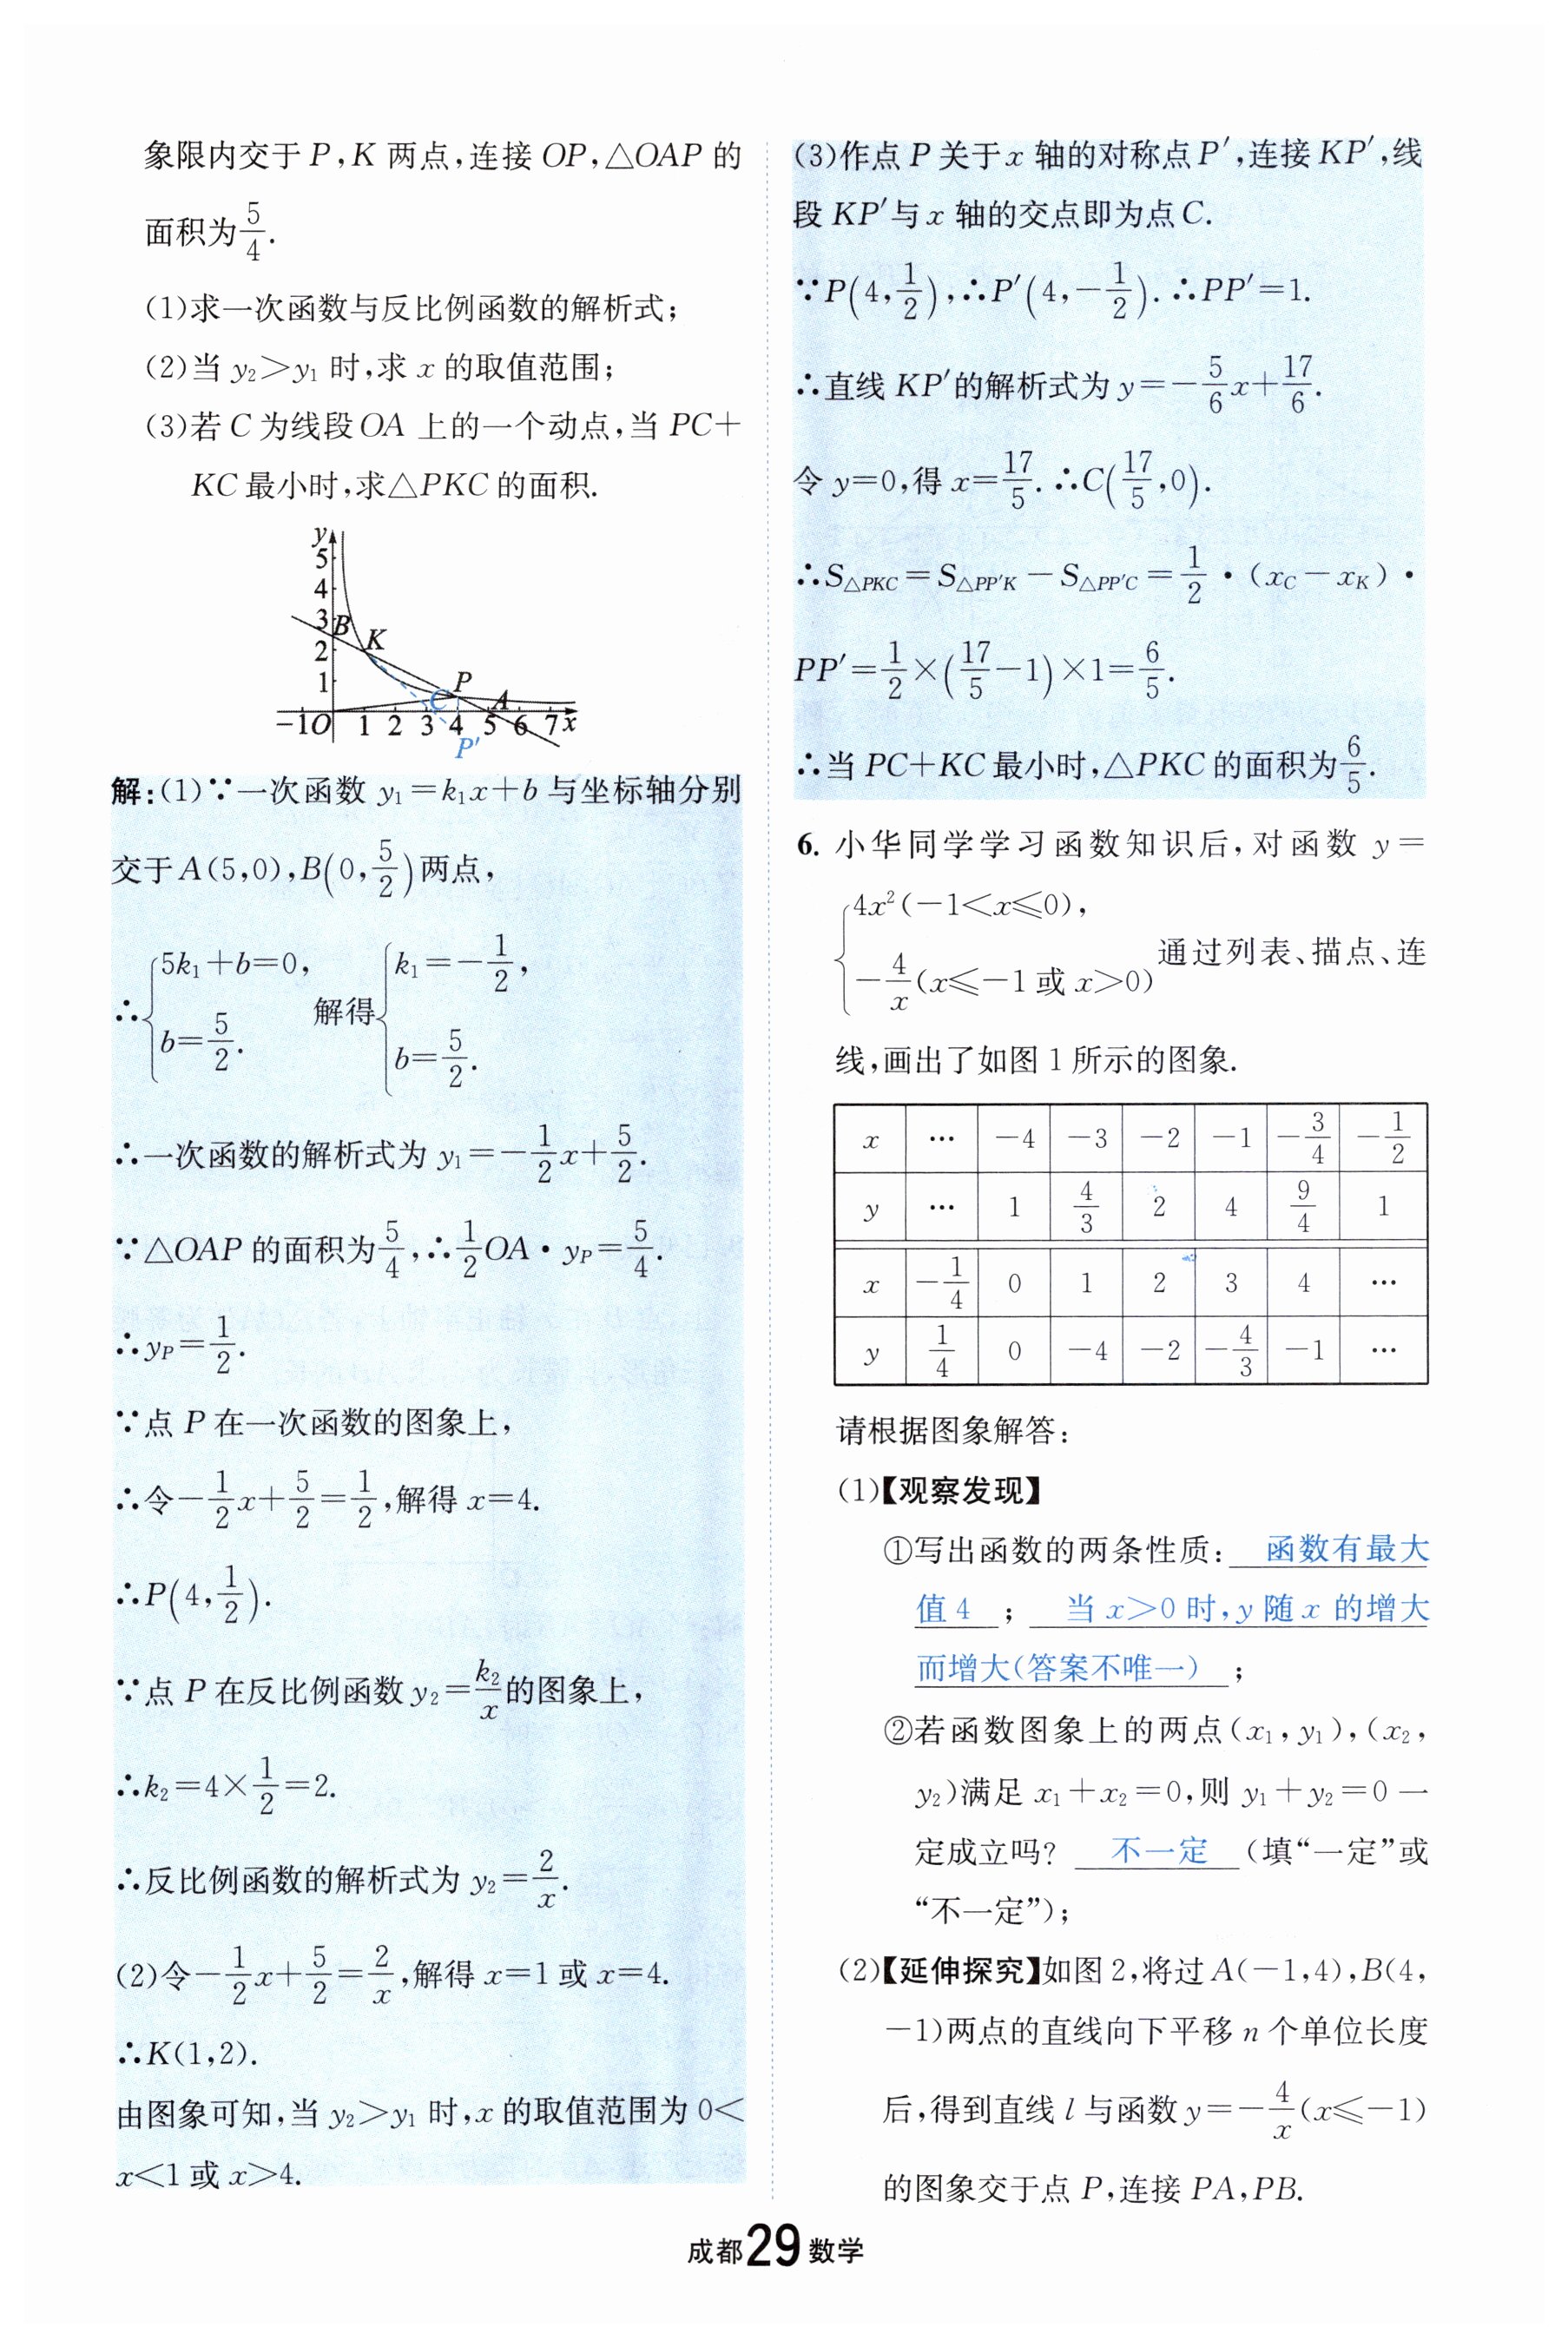 象限内交于 P,K 两点,连接 OP,△OAP 的
面积为5/4.
(1)求一次函数与反比例函数的解析式;
(2)当 y₂>y₁ 时,求 x 的取值范围;
(3)若 C 为线段 OA 上的一个动点,当 PC+
KC 最小时,求△PKC 的面积.
y
5
4
3 B
2 K
1 P
C A
-1 O 1 2 3 4 5 6 7 x
P′
解:(1)∵一次函数 y₁=k₁x+b 与坐标轴分别
交于 A(5,0),B(0,5/2)两点,
∴{5k₁+b=0, b=5/2. 解得{k₁=-1/2, b=5/2.
∴一次函数的解析式为 y₁=-1/2x+5/2.
∵△OAP 的面积为5/4,∴1/2OA·yP=5/4.
∴yP=1/2.
∵点 P 在一次函数的图象上,
∴令-1/2x+5/2=1/2,解得 x=4.
∴P(4,1/2).
∵点 P 在反比例函数 y₂=k₂/x的图象上,
∴k₂=4×1/2=2.
∴反比例函数的解析式为 y₂=2/x.
(2)令-1/2x+5/2=2/x,解得 x=1 或 x=4.
∴K(1,2).
由图象可知,当 y₂>y₁ 时,x 的取值范围为 0<
x<1 或 x>4.
(3)作点 P 关于 x 轴的对称点 P′,连接 KP′,线
段 KP′与 x 轴的交点即为点 C.
∵P(4,1/2),∴P′(4,-1/2).∴PP′=1.
∴直线 KP′的解析式为 y=-5/6x+17/6.
令 y=0,得 x=17/5.∴C(17/5,0).
∴S△PKC=S△PP′K-S△PP′C=1/2·(xC-xK)·
PP′=1/2×(17/5-1)×1=6/5.
∴当 PC+KC 最小时,△PKC 的面积为6/5.
6. 小华同学学习函数知识后,对函数 y=
{4x²(-1<x≤0), -4/x(x≤-1 或 x>0) 通过列表、描点、连
线,画出了如图 1 所示的图象.
x … -4 -3 -2 -1 -3/4 -1/2
y … 1 4/3 2 4 9/4 1
x -1/4 0 1 2 3 4 …
y 1/4 0 -4 -2 -4/3 -1 …
请根据图象解答:
(1)【观察发现】
①写出函数的两条性质: 函数有最大
值 4 ; 当 x>0 时,y 随 x 的增大
而增大(答案不唯一) ;
②若函数图象上的两点(x₁,y₁),(x₂,
y₂)满足 x₁+x₂=0,则 y₁+y₂=0 一
定成立吗? 不一定 (填“一定”或
“不一定”);
(2)【延伸探究】如图 2,将过 A(-1,4),B(4,
-1)两点的直线向下平移 n 个单位长度
后,得到直线 l 与函数 y=-4/x(x≤-1)
的图象交于点 P,连接 PA,PB.
成都 29 数学